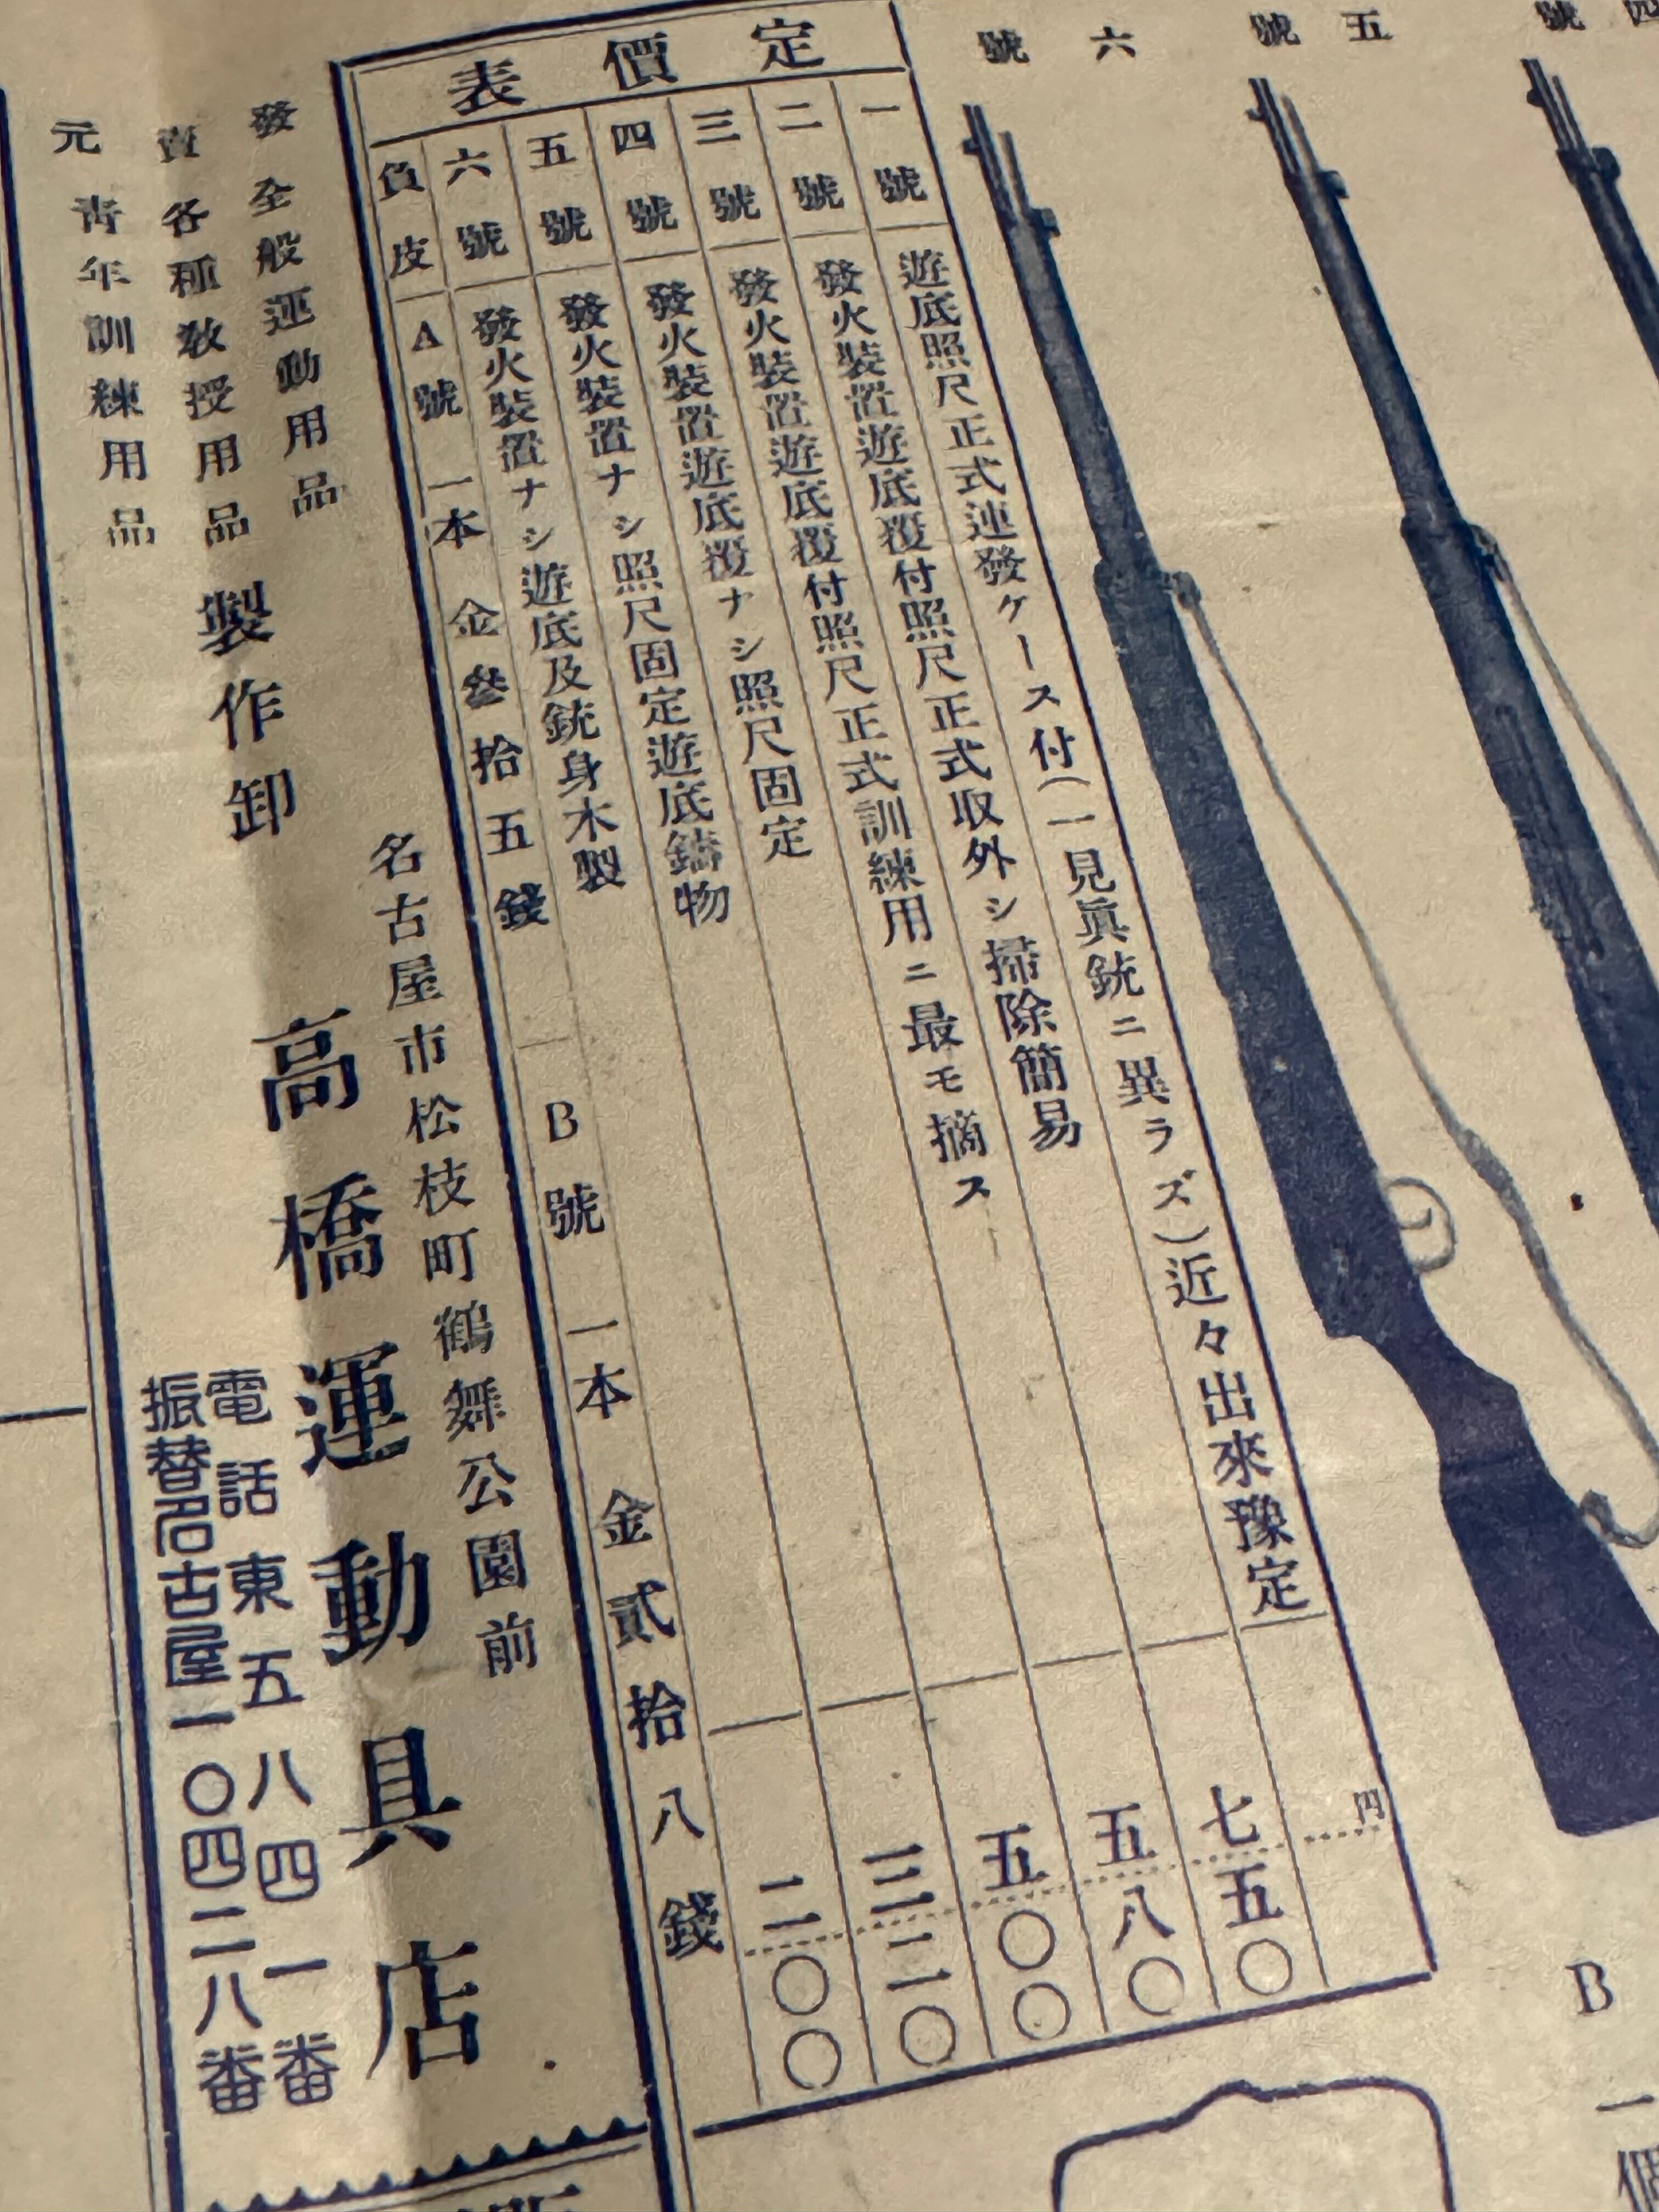 四號
五號
六號
定價表
一號 遊底照尺正式連發ケース付(一見眞銃ニ異ラズ)近々出來豫定 円
二號 發火裝置遊底覆付照尺正式取外シ掃除簡易 七五〇
三號 發火裝置遊底覆付照尺正式訓練用ニ最モ摘ス 五八〇
四號 發火裝置遊底覆ナシ照尺固定 五〇〇
五號 發火裝置ナシ照尺固定遊底鑄物 三二〇
六號 發火裝置ナシ遊底及銃身木製 二〇〇
負皮 A號 一本 金參拾五錢 B號 一本 金貳拾八錢
B
一個
名古屋市松枝町鶴舞公園前
發賣元
全般運動用品
各種敎授用品
靑年訓練用品
製作卸
高橋運動具店
電話東五八四一番
振替名古屋一〇四二八番